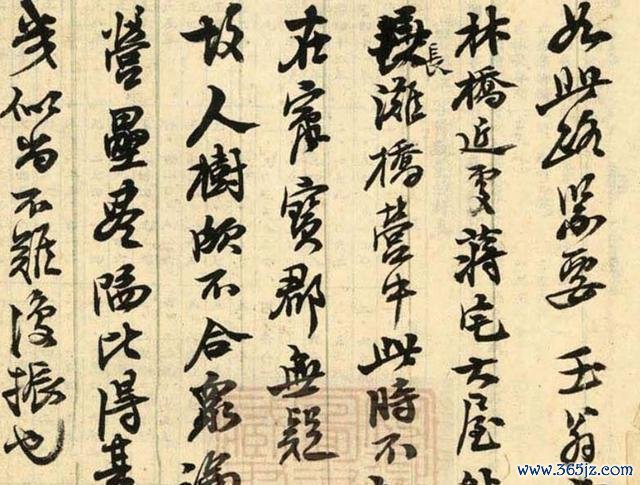 如此路緊要 玉翁
林橋近處蔣宅大屋
長灘橋營中此時不
在寶郡無疑
故人樹頗不合衆論
營壘盡陷比得其
幾似尚不難復振也
www.365jz.com